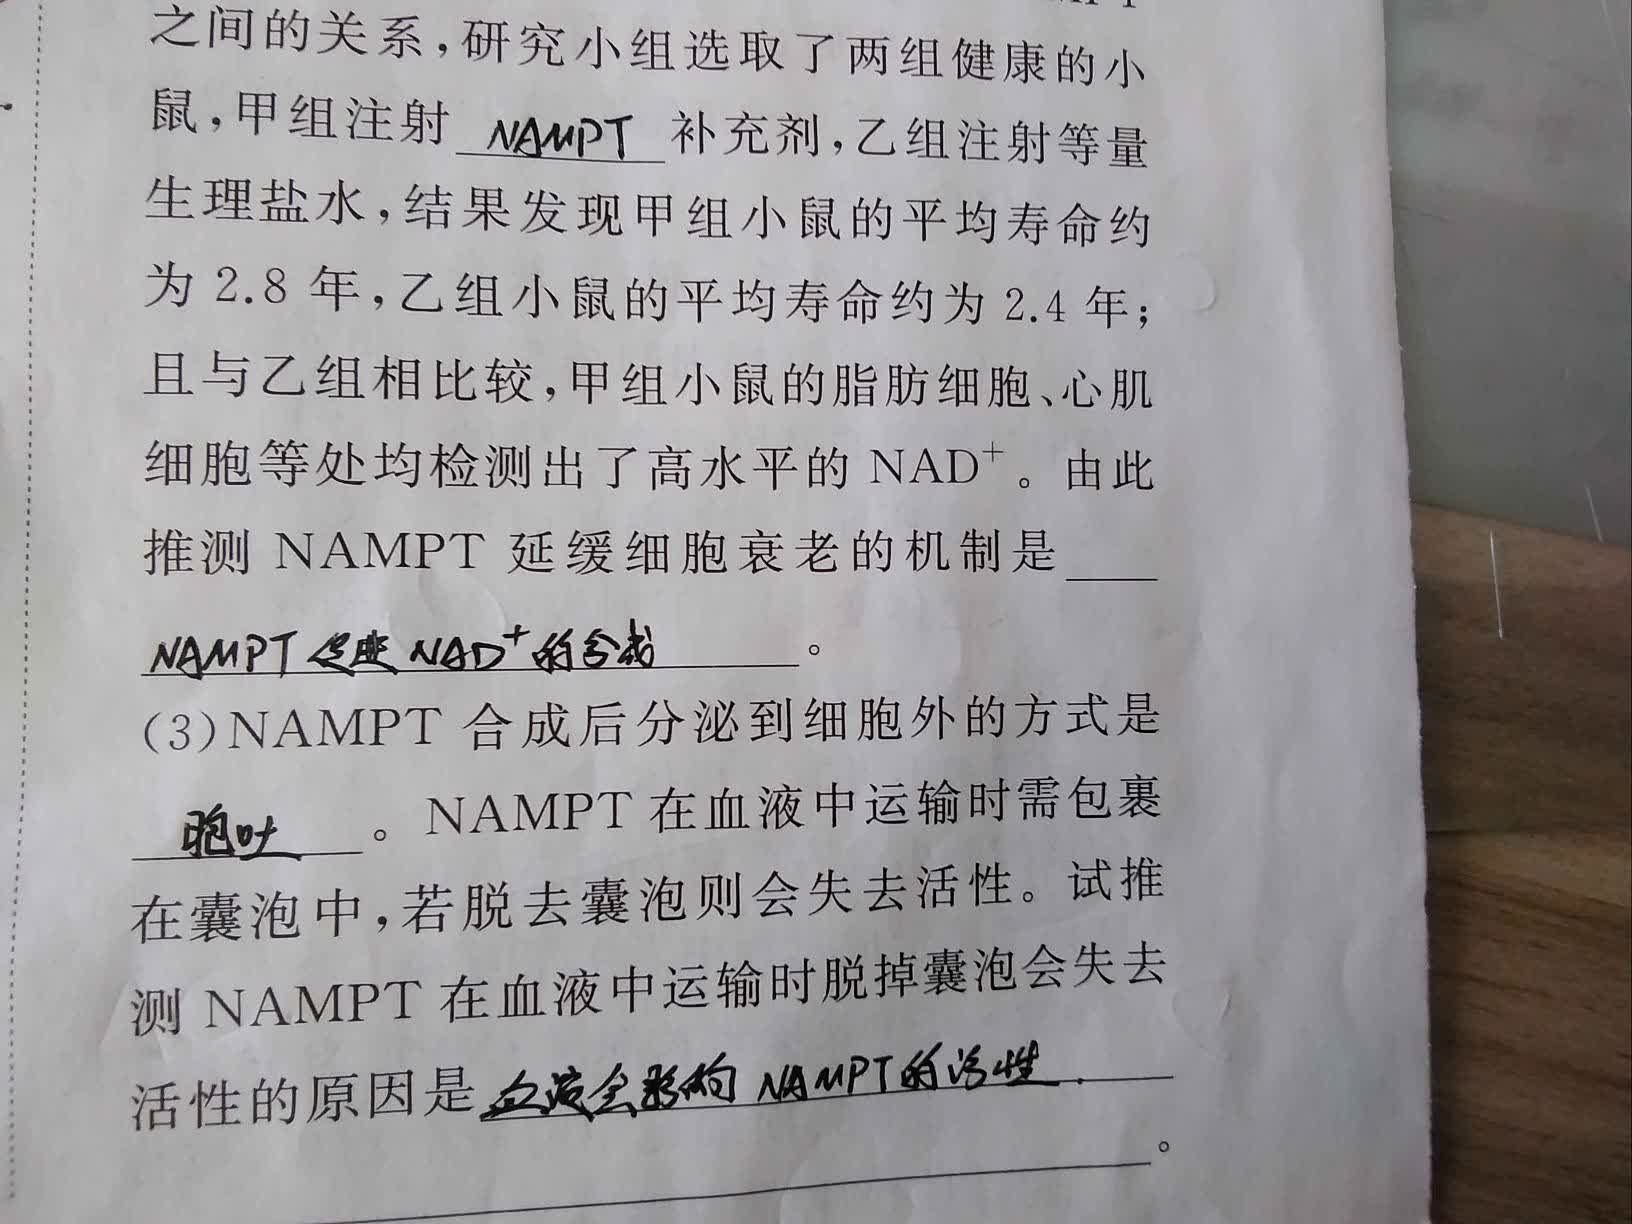 之间的关系,研究小组选取了两组健康的小
鼠,甲组注射 NAMPT 补充剂,乙组注射等量
生理盐水,结果发现甲组小鼠的平均寿命约
为 2.8 年,乙组小鼠的平均寿命约为 2.4 年;
且与乙组相比较,甲组小鼠的脂肪细胞、心肌
细胞等处均检测出了高水平的 NAD⁺。由此
推测 NAMPT 延缓细胞衰老的机制是
NAMPT 促进 NAD⁺ 的合成。
(3)NAMPT 合成后分泌到细胞外的方式是
胞吐。NAMPT 在血液中运输时需包裹
在囊泡中,若脱去囊泡则会失去活性。试推
测 NAMPT 在血液中运输时脱掉囊泡会失去
活性的原因是 血液会影响 NAMPT 的活性.
。